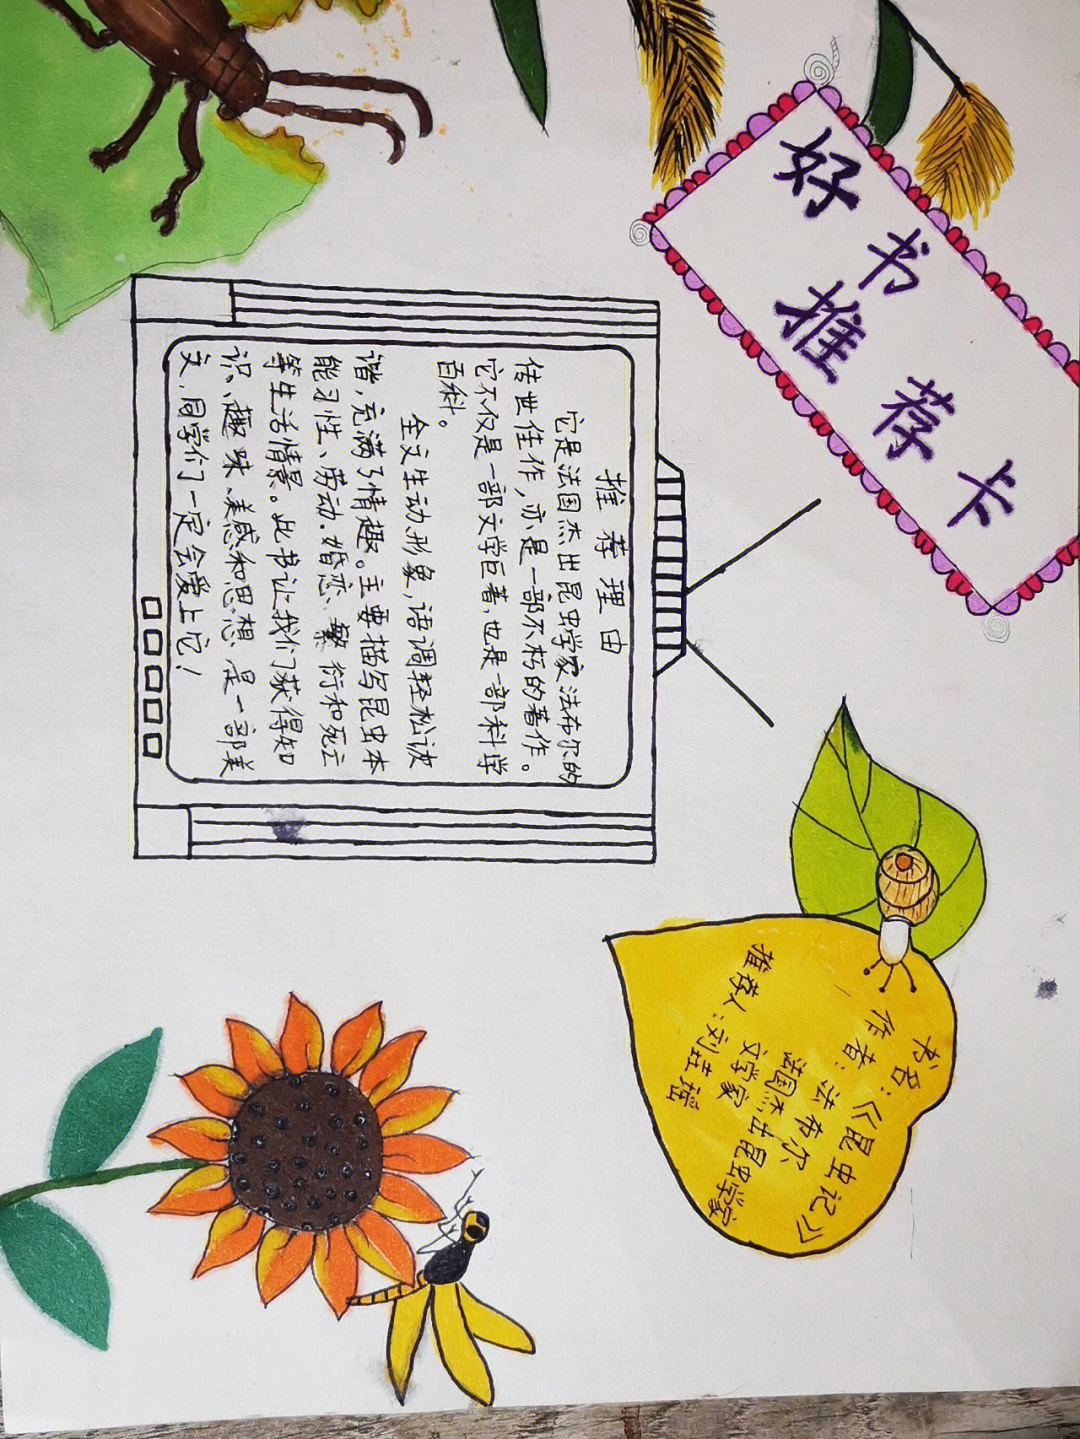 好书推荐卡
书名:《昆虫记》
作者:法布尔
法国杰出昆虫学家
文学家
推荐人:刘
推荐理由
它是法国杰出昆虫学家法布尔的
传世佳作,亦是一部不朽的著作。
它不仅是一部文学巨著,也是一部科学
百科。
全文生动形象,语调轻松诙
谐,充满了情趣。主要描写昆虫本
能习性、劳动.婚恋、繁衍和死亡
等生活情景。此书让我们获得知
识、趣味、美感和思想 是一部美
文,同学们一定会爱上它!